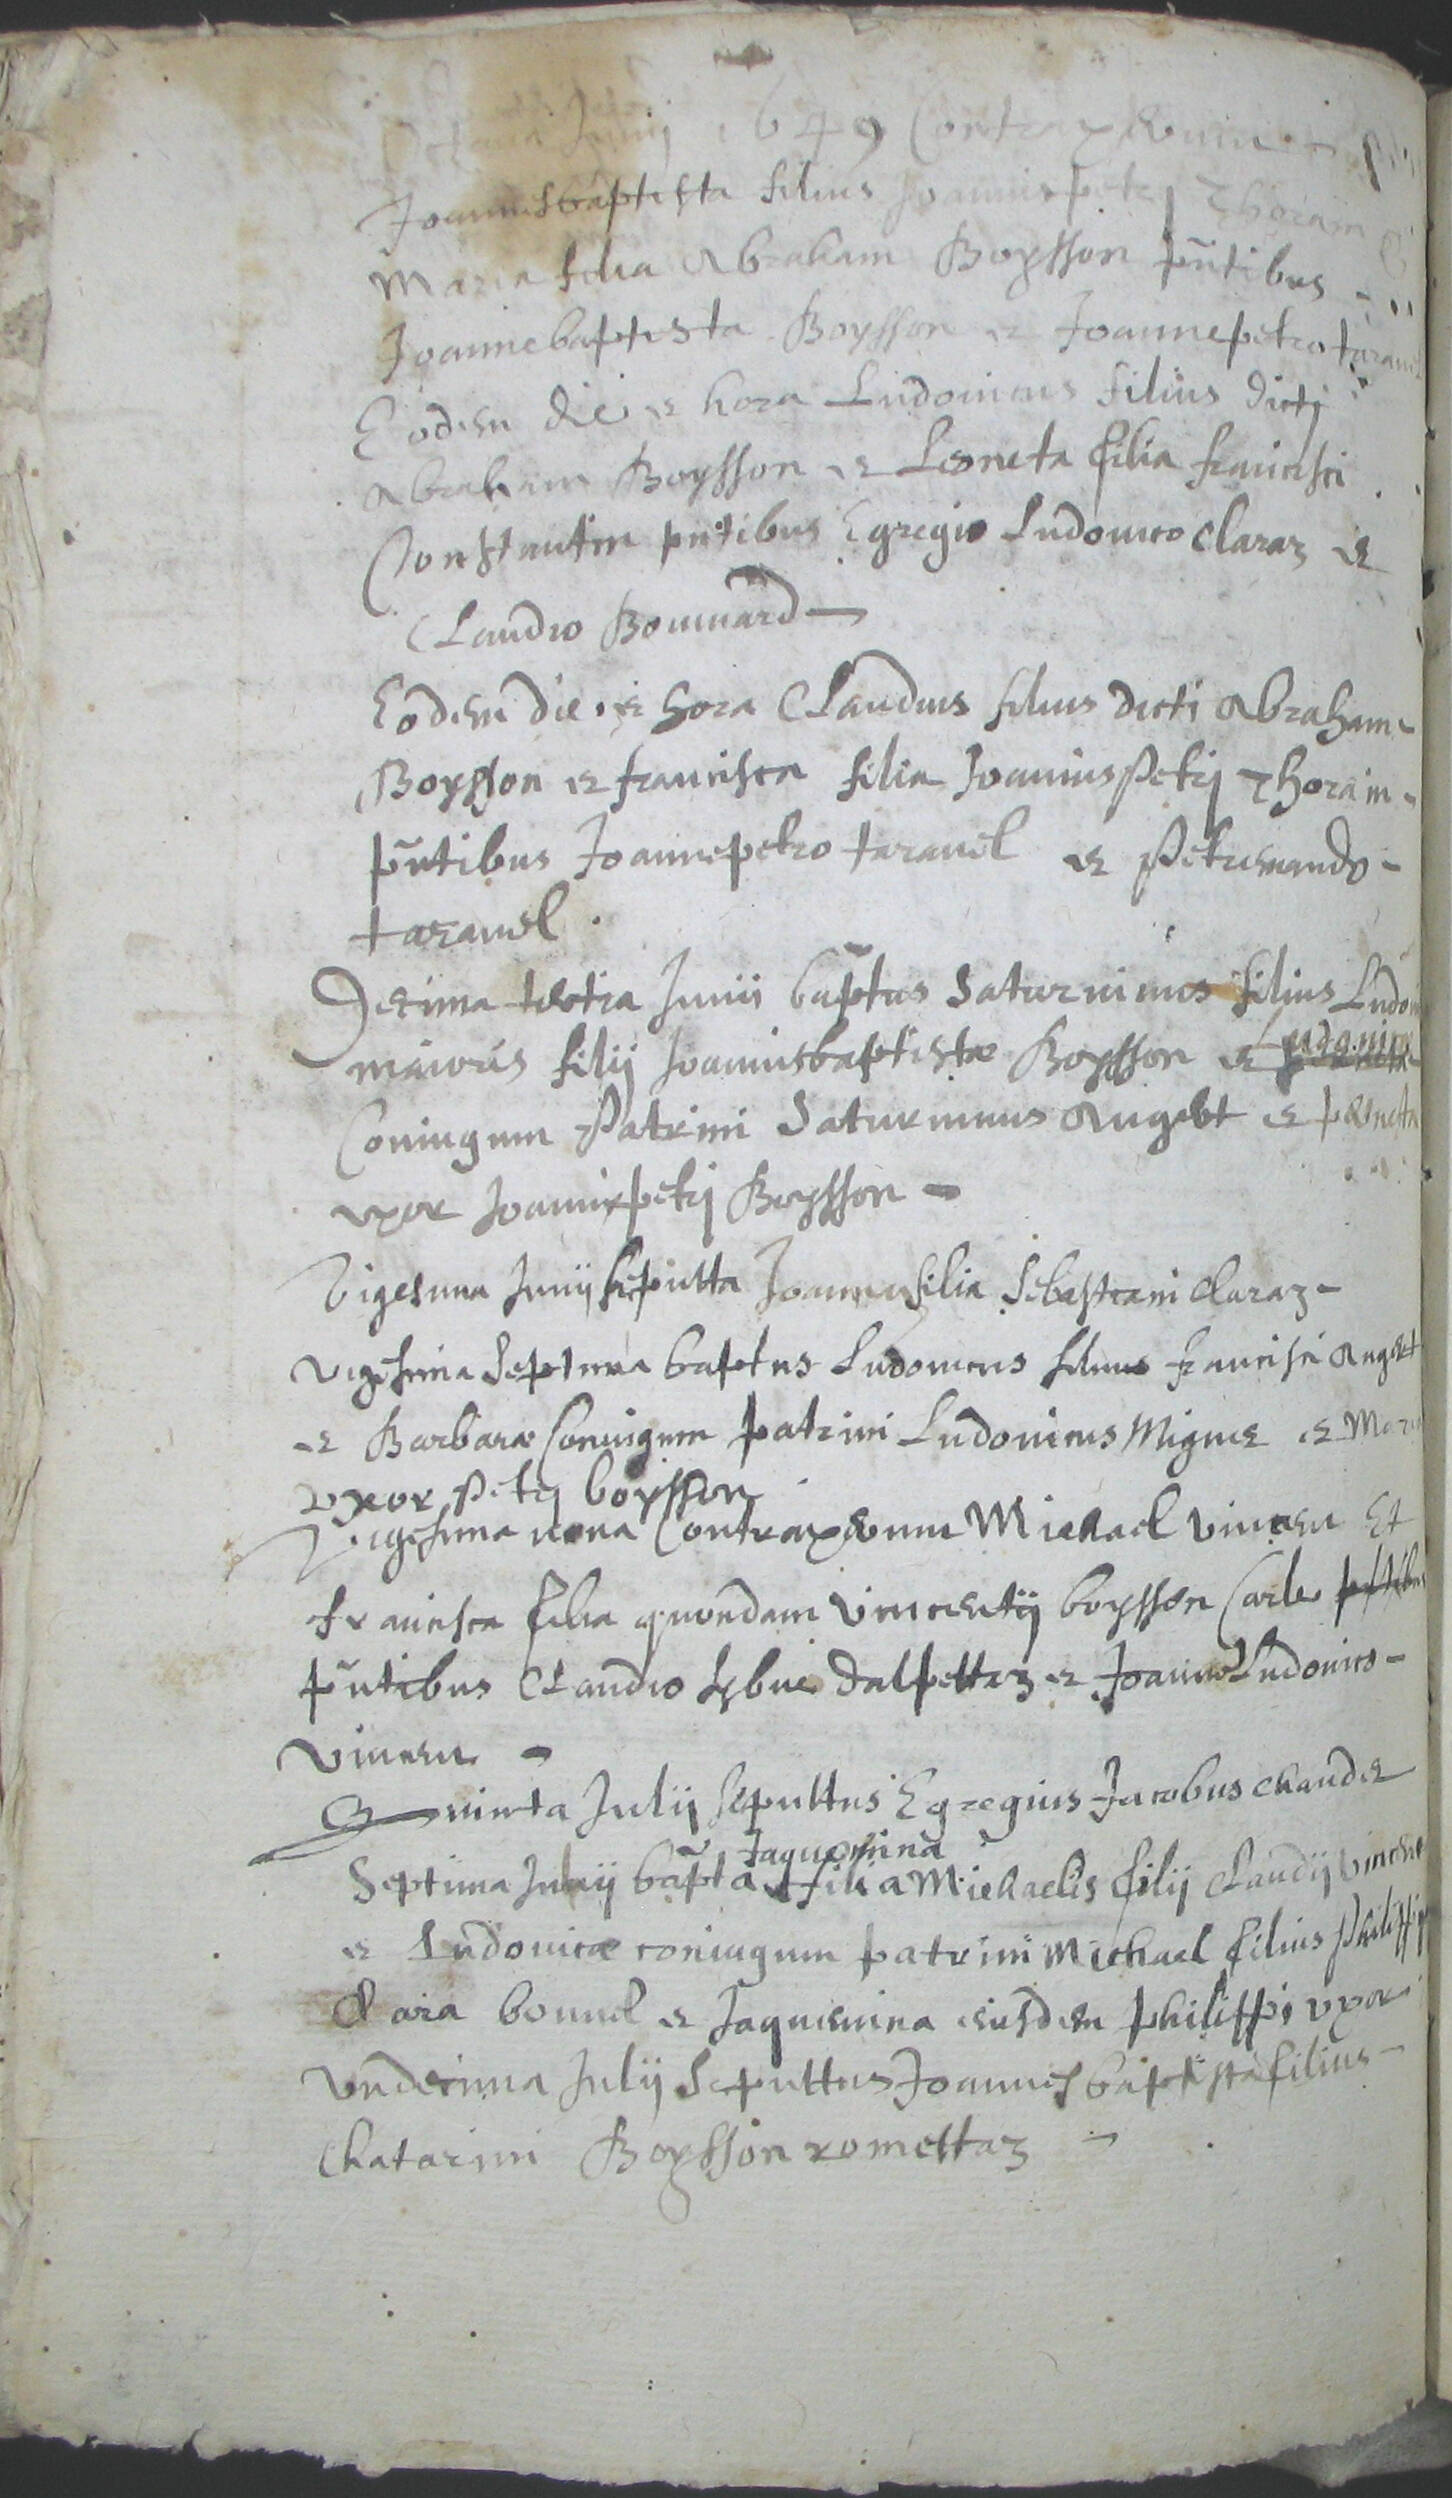 Octava Junij 1649 Contraxerunt
Joannesbaptista filius Joannispetrj Thorain
Maria filia Abraham Boysson pntibus
Joannebaptista Boysson et Joannepetro taravel
Eodem die et hora Ludovicus filius dictj
Abraham Boysson et Leoneta filia francisci
Constantin pntibus Egregio Ludovico Claraz et
Claudio Bouvard
Eodem die et hora Claudius filius dicti Abraham
Boysson et francisca filia Joannispetrj Thorain
pntibus Joannepetro taravel et Petremando
taravel
Decima tertia Junii baptus Saturninus filius Ludovi
maioris filij Joannisbaptistæ Boysson et Ludovica
Coniugum Patrini Saturninus Augert et perneta
uxor Joannispetrj Boysson
Vigesima Junij sepulta Joanna filia Sebastiani Claraz
vigesima Septima baptus Ludovicus filius francisci Augert
et Barbaræ Coniugum patrini Ludovicus Mignie et Maria
uxor Petrj boysson
Vigesima nona Contraxerunt Michael vincen Et
francisca filia quondam vincentij boysson Carle
pntibus Claudio Sybue dalpettaz et Joanne Ludovico
vincen
Quinta Julij sepultus Egregius Jacobus Chaude
Jaquemina
Septima Julij bapta filia Michaelis filij Claudij vincen
et Ludovicæ coniugum patrini Michael filius Philippi
Clara bouuel et Jaquemina eiusdem philippi uxor
undecima Julij Sepultus Joannes baptista filius
Chatarini Boysson romettaz